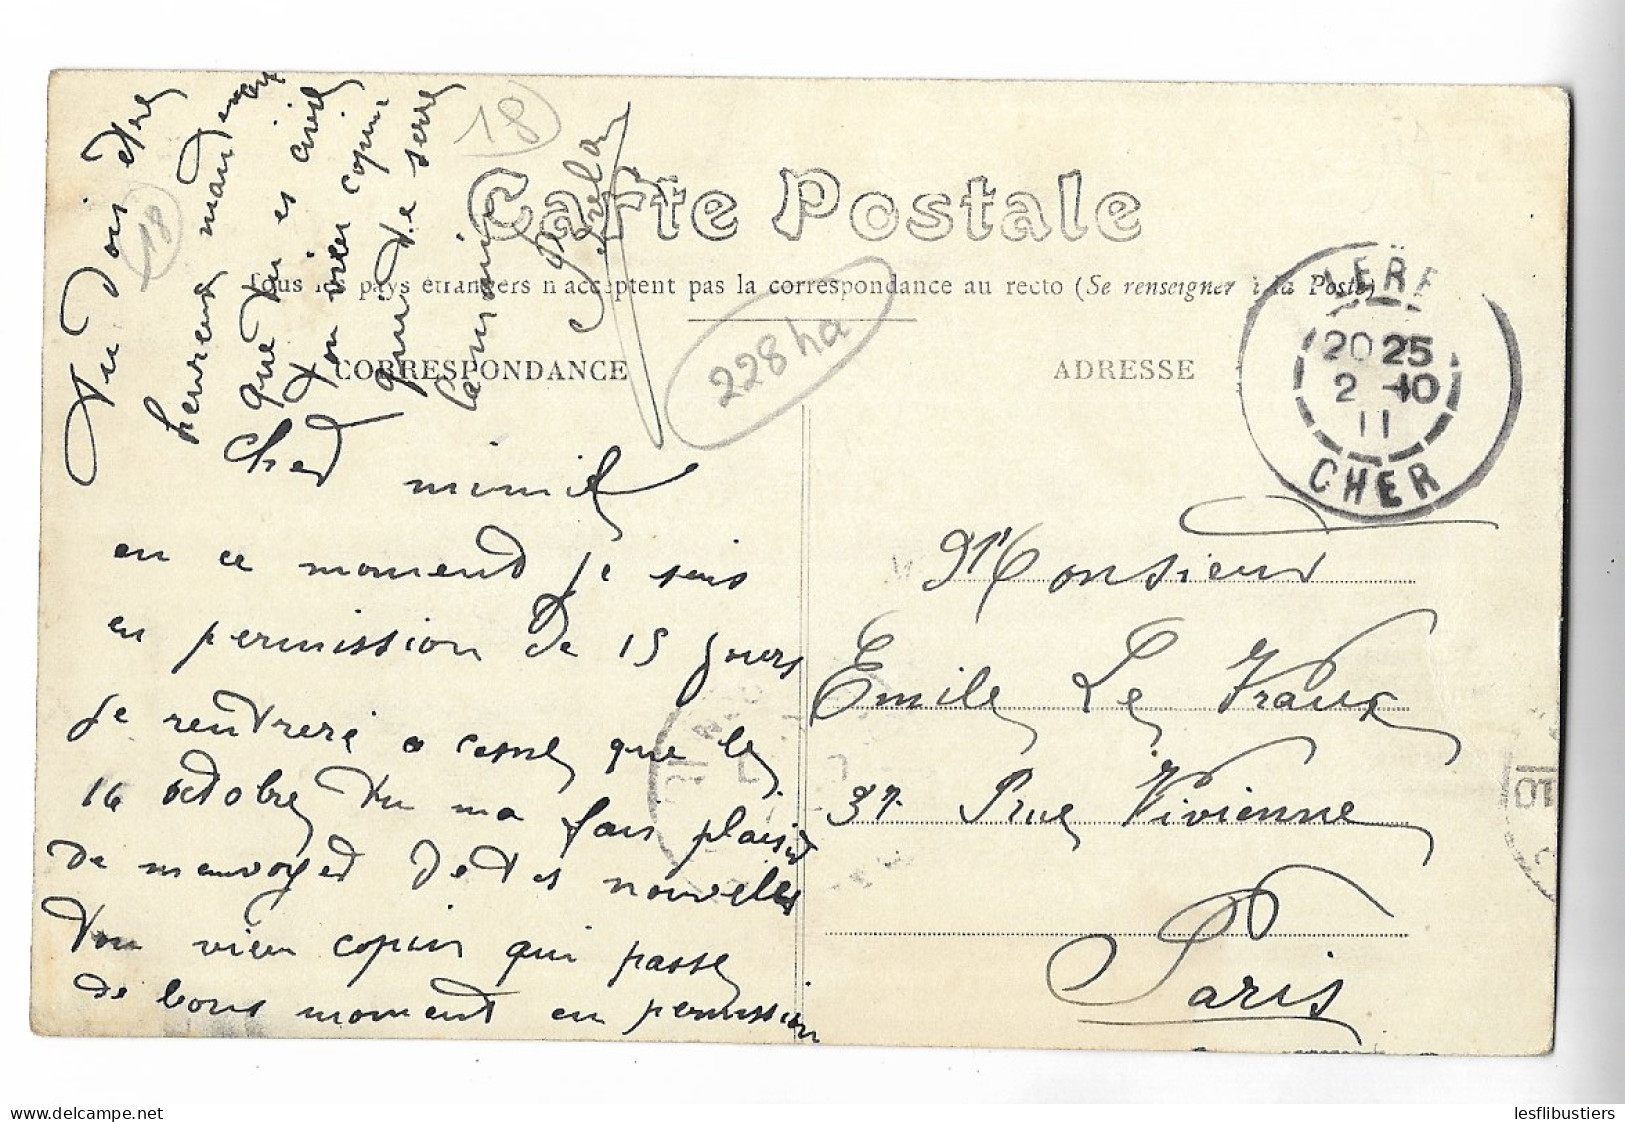 Carte Postale
Tous les pays étrangers n'acceptent pas la correspondance au recto (Se renseigner à la Poste)
CORRESPONDANCE
ADRESSE
18
18
228 ha
LERE
20 25
2 -10
11
CHER
Cher mimil
en ce moment je suis
en permission de 15 jours
je rentrere a caserne que le
16 octobre tu ma fais plaisir
de menvoyer de tes nouvelles
Ton vieu copin qui passe
de bons moment en permission
Tu dois etre
heureux maintenant
que tu es civil
ton vieu copin
qui te serre
la main
Monsieur
Emile Le Vraux
37 Rue Vivienne
Paris
lesflibustiers
delcampe.net